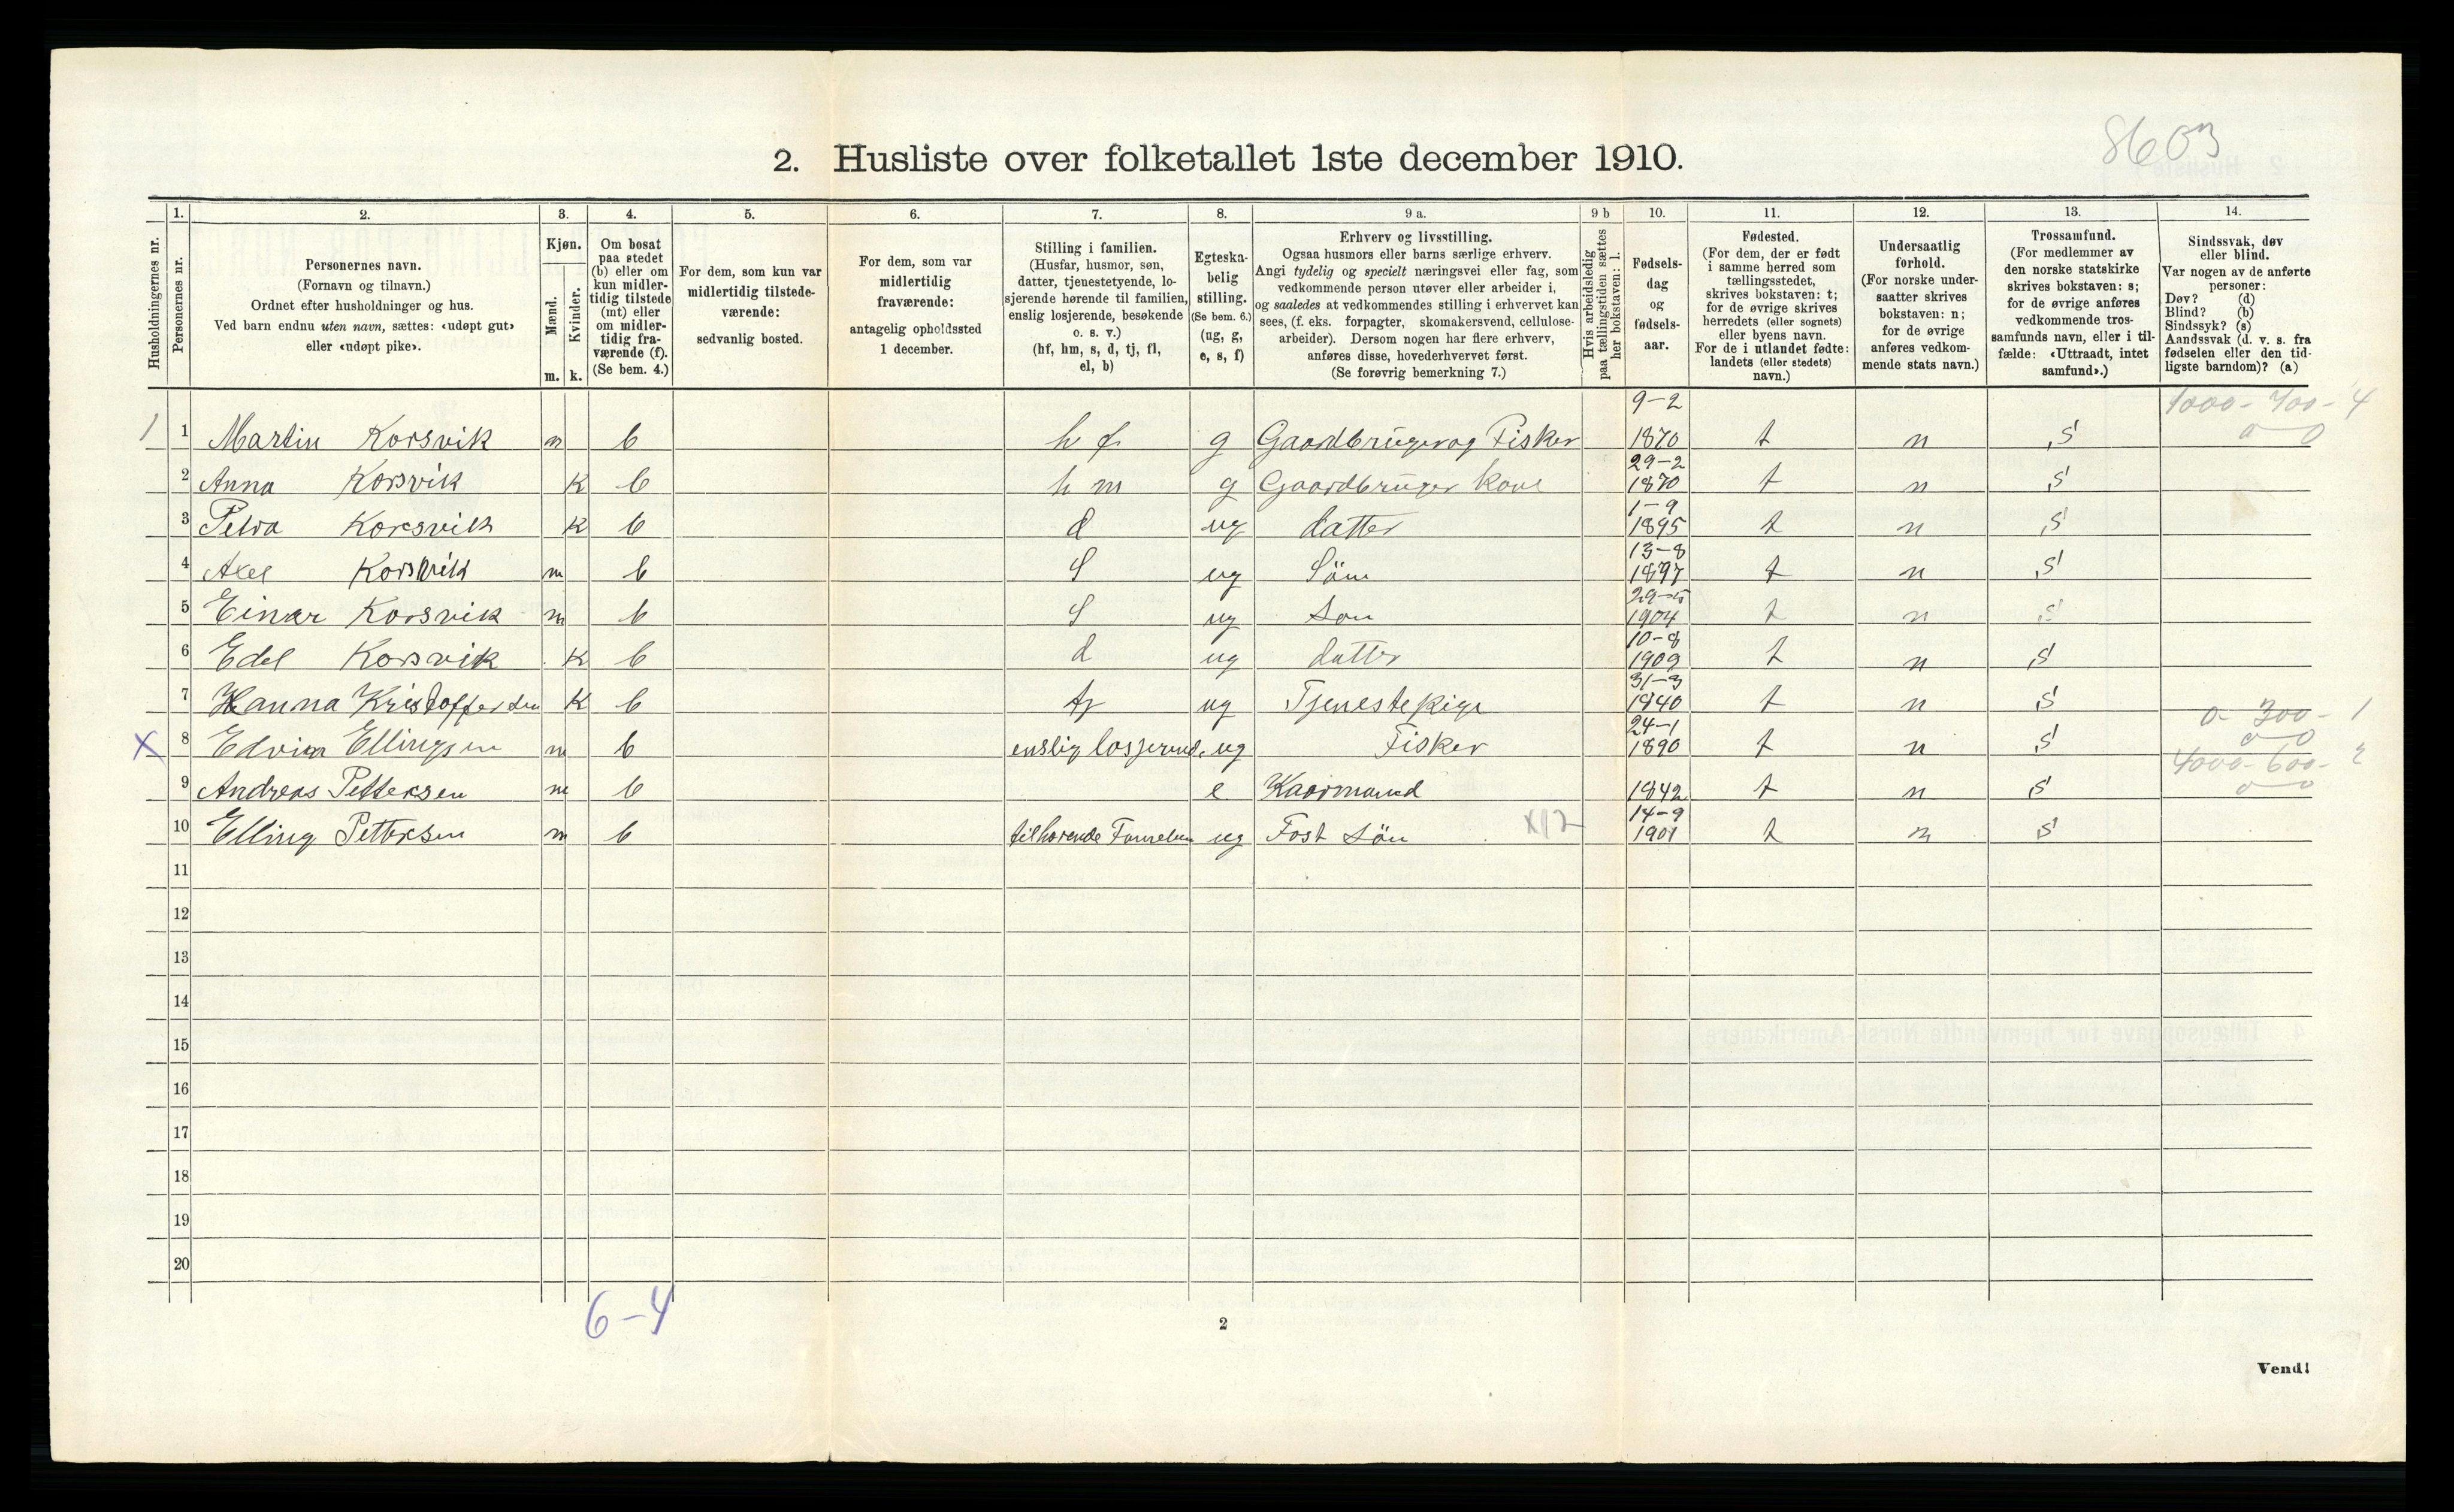 8603
2. Husliste over folketallet 1ste december 1910.
Husholdningernes nr.
1. Personernes nr.
2. Personernes navn.
(Fornavn og tilnavn.)
Ordnet efter husholdninger og hus.
Ved barn endnu uten navn, sættes: «udøpt gut»
eller «udøpt pike».
3. Kjøn.
Mænd. m.
Kvinder. k.
4. Om bosat
paa stedet
(b) eller om
kun midler-
tidig tilstede
(mt) eller
om midler-
tidig fra-
værende (f).
(Se bem. 4.)
5. For dem, som kun var
midlertidig tilstede-
værende:
sedvanlig bosted.
6. For dem, som var
midlertidig
fraværende:
antagelig opholdssted
1 december.
7. Stilling i familien.
(Husfar, husmor, søn,
datter, tjenestetyende, lo-
sjerende hørende til familien,
enslig losjerende, besøkende
o. s. v.)
(hf, hm, s, d, tj, fl,
el, b)
8. Egteska-
belig
stilling.
(Se bem. 6.)
(ug, g,
e, s, f)
9 a. Erhverv og livsstilling.
Ogsaa husmors eller barns særlige erhverv.
Angi tydelig og specielt næringsvei eller fag, som
vedkommende person utøver eller arbeider i,
og saaledes at vedkommendes stilling i erhvervet kan
sees, (f. eks. forpagter, skomakersvend, cellulose-
arbeider). Dersom nogen har flere erhverv,
anføres disse, hovederhvervet først.
(Se forøvrig bemerkning 7.)
9 b Hvis arbeidsledig
paa tællingstiden sættes
her bokstaven: l.
10. Fødsels-
dag
og
fødsels-
aar.
11. Fødested.
(For dem, der er født
i samme herred som
tællingsstedet,
skrives bokstaven: t;
for de øvrige skrives
herredets (eller sognets)
eller byens navn.
For de i utlandet fødte:
landets (eller stedets)
navn.)
12. Undersaatlig
forhold.
(For norske under-
saatter skrives
bokstaven: n;
for de øvrige
anføres vedkom-
mende stats navn.)
13. Trossamfund.
(For medlemmer av
den norske statskirke
skrives bokstaven: s;
for de øvrige anføres
vedkommende tros-
samfunds navn, eller i til-
fælde: «Uttraadt, intet
samfund».)
14. Sindssvak, døv
eller blind.
Var nogen av de anførte
personer:
Døv? (d)
Blind? (b)
Sindssyk? (s)
Aandssvak (d. v. s. fra
fødselen eller den tid-
ligste barndom)? (a)
1000 - 700 - 4
0 0
1 1 Martin Korsvik m b h f g Gaardbruger og Fisker 9-2 1870 t n s
2 Anna Korsvik k b h m g Gaardbruger kone 29-2 1870 t n s
3 Petra Korsvik k b d ug datter 1-9 1895 t n s
4 Axel Korsvik m b S ug Sön 13-8 1897 t n s
5 Einar Korsvik m b S ug Son 29-5 1904 t n s
6 Edel Korsvik k b d ug datter 10-8 1909 t n s
7 Hanna Kristoffersen k b tj ug Tjenestepige 31-3 1840 t n s
0 - 300 - 1
0 0
X 8 Edvin Ellingsen m b enslig losjerend. ug Fisker 24-1 1890 t n s
4000 - 600 - 2
0 0
9 Andreas Pettersen m b e Kaarmand 1842 t n s
10 Elling Pettersen m b tilhorende ug Fost Sön X12 14-9 1901 t n s
11
12
13
14
15
16
17
18
19
20
6-4
2
Vend!